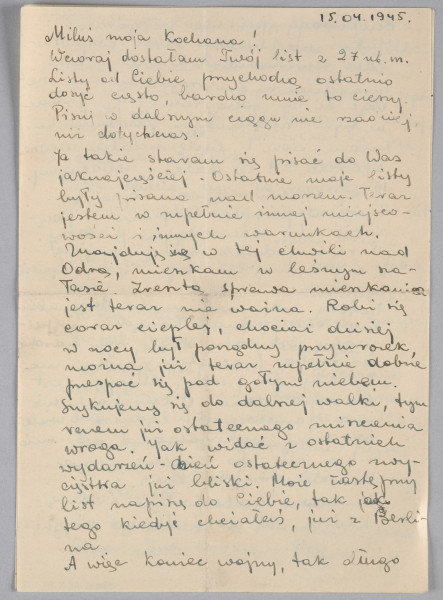 15.04.1945.
Miluś moja Kochana!
Wczoraj dostałam Twój list z 27 ub. m.
Listy od Ciebie przychodzą ostatnio
dosyć często, bardzo mnie to cieszy.
Pisuj w dalszym ciągu nie rzadziej,
niż dotychczas.
Ja także staram się pisać do Was
jaknajczęściej. Ostatnie moje listy
były pisane nad morzem. Teraz
jestem w zupełnie innej miejsco-
wości i innych warunkach.
Znajduję się w tej chwili nad
Odrą, mieszkam w leśnym sza-
łasie. Zresztą sprawa mieszkania
jest teraz nie ważna. Robi się
coraz cieplej, chociaż dzisiej
w nocy był porządny przymrozek,
można już teraz zupełnie dobrze
przespać się pod gołym niebem.
Szykujemy się do dalszej walki, tym
razem już ostatecznego zniszczenia
wroga. Jak widać z ostatnich
wydarzeń - dzień ostatecznego zwy-
cięstwa już bliski. Może następny
list napiszę do Ciebie, tak jak
tego kiedyś chciałaś, już z Berli-
na
A więc koniec wojny, tak długo